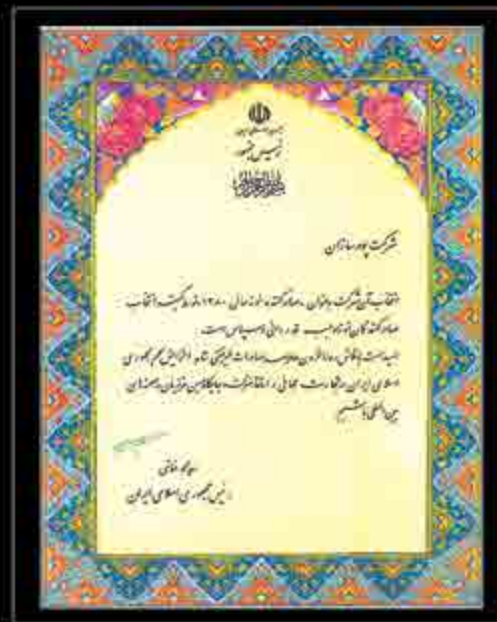 جمهوری اسلامی ایران
رئیس جمهور
شرکت پودر سازان
انتخاب آن شرکت بعنوان صادرکننده نمونه سال ۱۳۸۰ توسط کمیته انتخاب
صادرکنندگان نمونه موجب قدردانی و سپاس است.
امید است با تلاش روزافزون صادرات غیرنفتی شاهد افزایش سهم جمهوری
اسلامی ایران در تجارت جهانی و ارتقاء شرکت و جایگاه میهن عزیزمان در صحنه‌های
بین المللی باشیم
سید محمد خاتمی
رئیس جمهوری اسلامی ایران